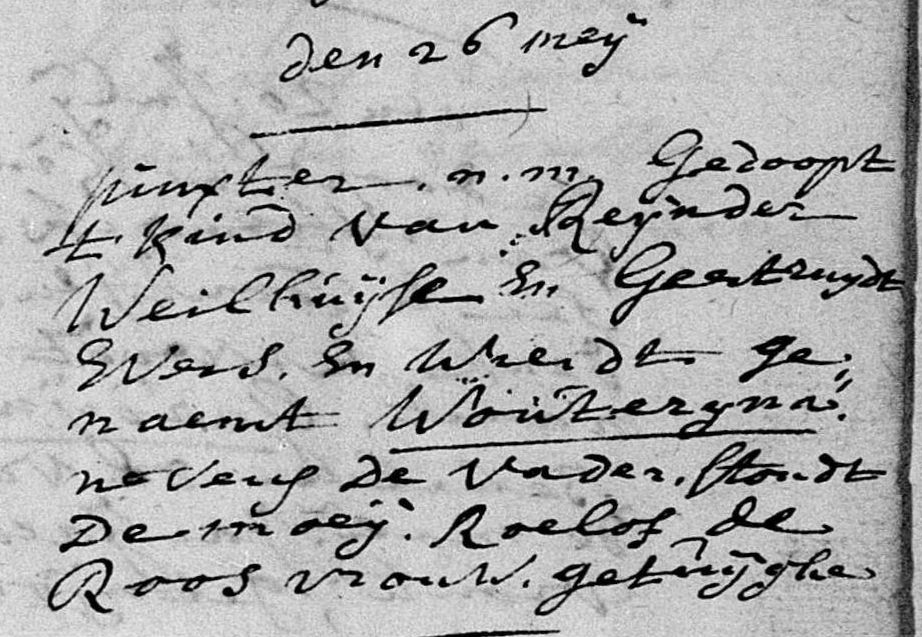 den 26 meÿ
pinxter. n. m. Gedoopt
t kind van Reÿnder
Weilhuÿse En Geertruÿdt
Evers. En Wierdt ge,
naemt Wouteryna.
nevens De Vader. stondt
De moeÿ. Roelof de
Roos vrouw. getuÿghe